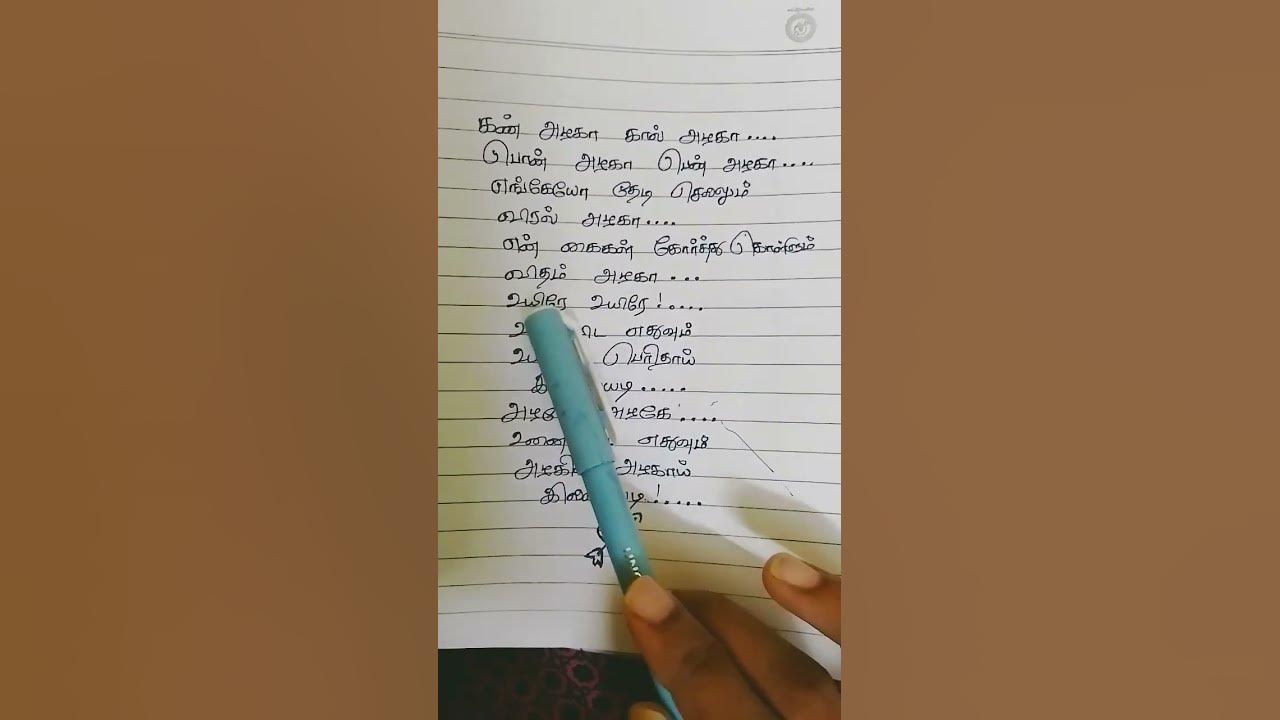 கண் அழகா கால் அழகா....
பொன் அழகா பெண் அழகா....
எங்கேயோ தேடி செலும்
விரல் அழகா....
என் கைகள் கோர்த்து கொள்ளும்
விதம் அழகா ...
உயிரே உயிரே!....
எதுவும்
பெரிதாய்
.....
அழகே....
எதுவும்
அழகாய்
!.....